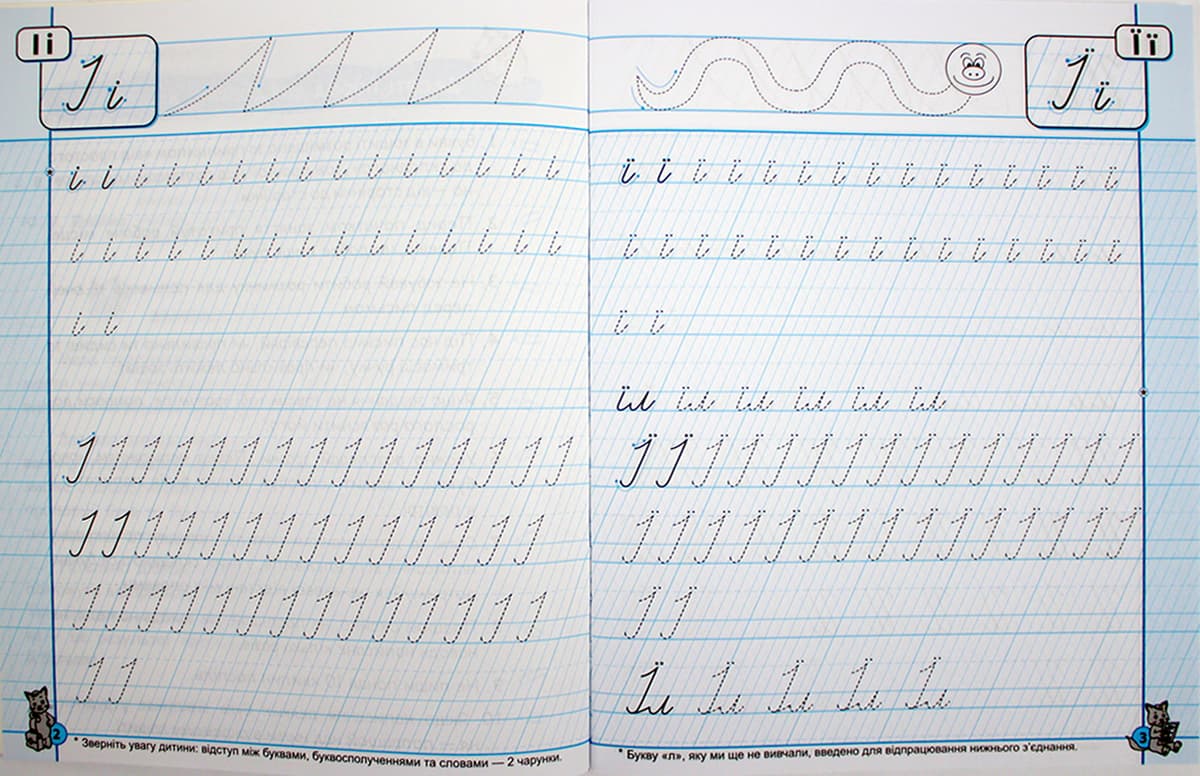 Іі
І і
і і і і і і і і і і і і і і і
і і і і і і і і і і і і і і і
і і
І І І І І І І І І І І І І І І
І І І І І І І І І І І І І І
І І І І І І І І І І І І І І
І І
2
* Зверніть увагу дитини: відступ між буквами, буквосполученнями та словами — 2 чарунки.
Її
Ї ї
ї ї ї ї ї ї ї ї ї ї ї ї ї ї ї
ї ї ї ї ї ї ї ї ї ї ї ї ї ї ї
ї ї
їл їл їл їл їл їл
Ї Ї Ї Ї Ї Ї Ї Ї Ї Ї Ї Ї Ї Ї Ї
Ї Ї Ї Ї Ї Ї Ї Ї Ї Ї Ї Ї Ї Ї Ї
Ї Ї
Їл Їл Їл Їл Їл
3
* Букву «л», яку ми ще не вивчали, введено для відпрацювання нижнього з'єднання.